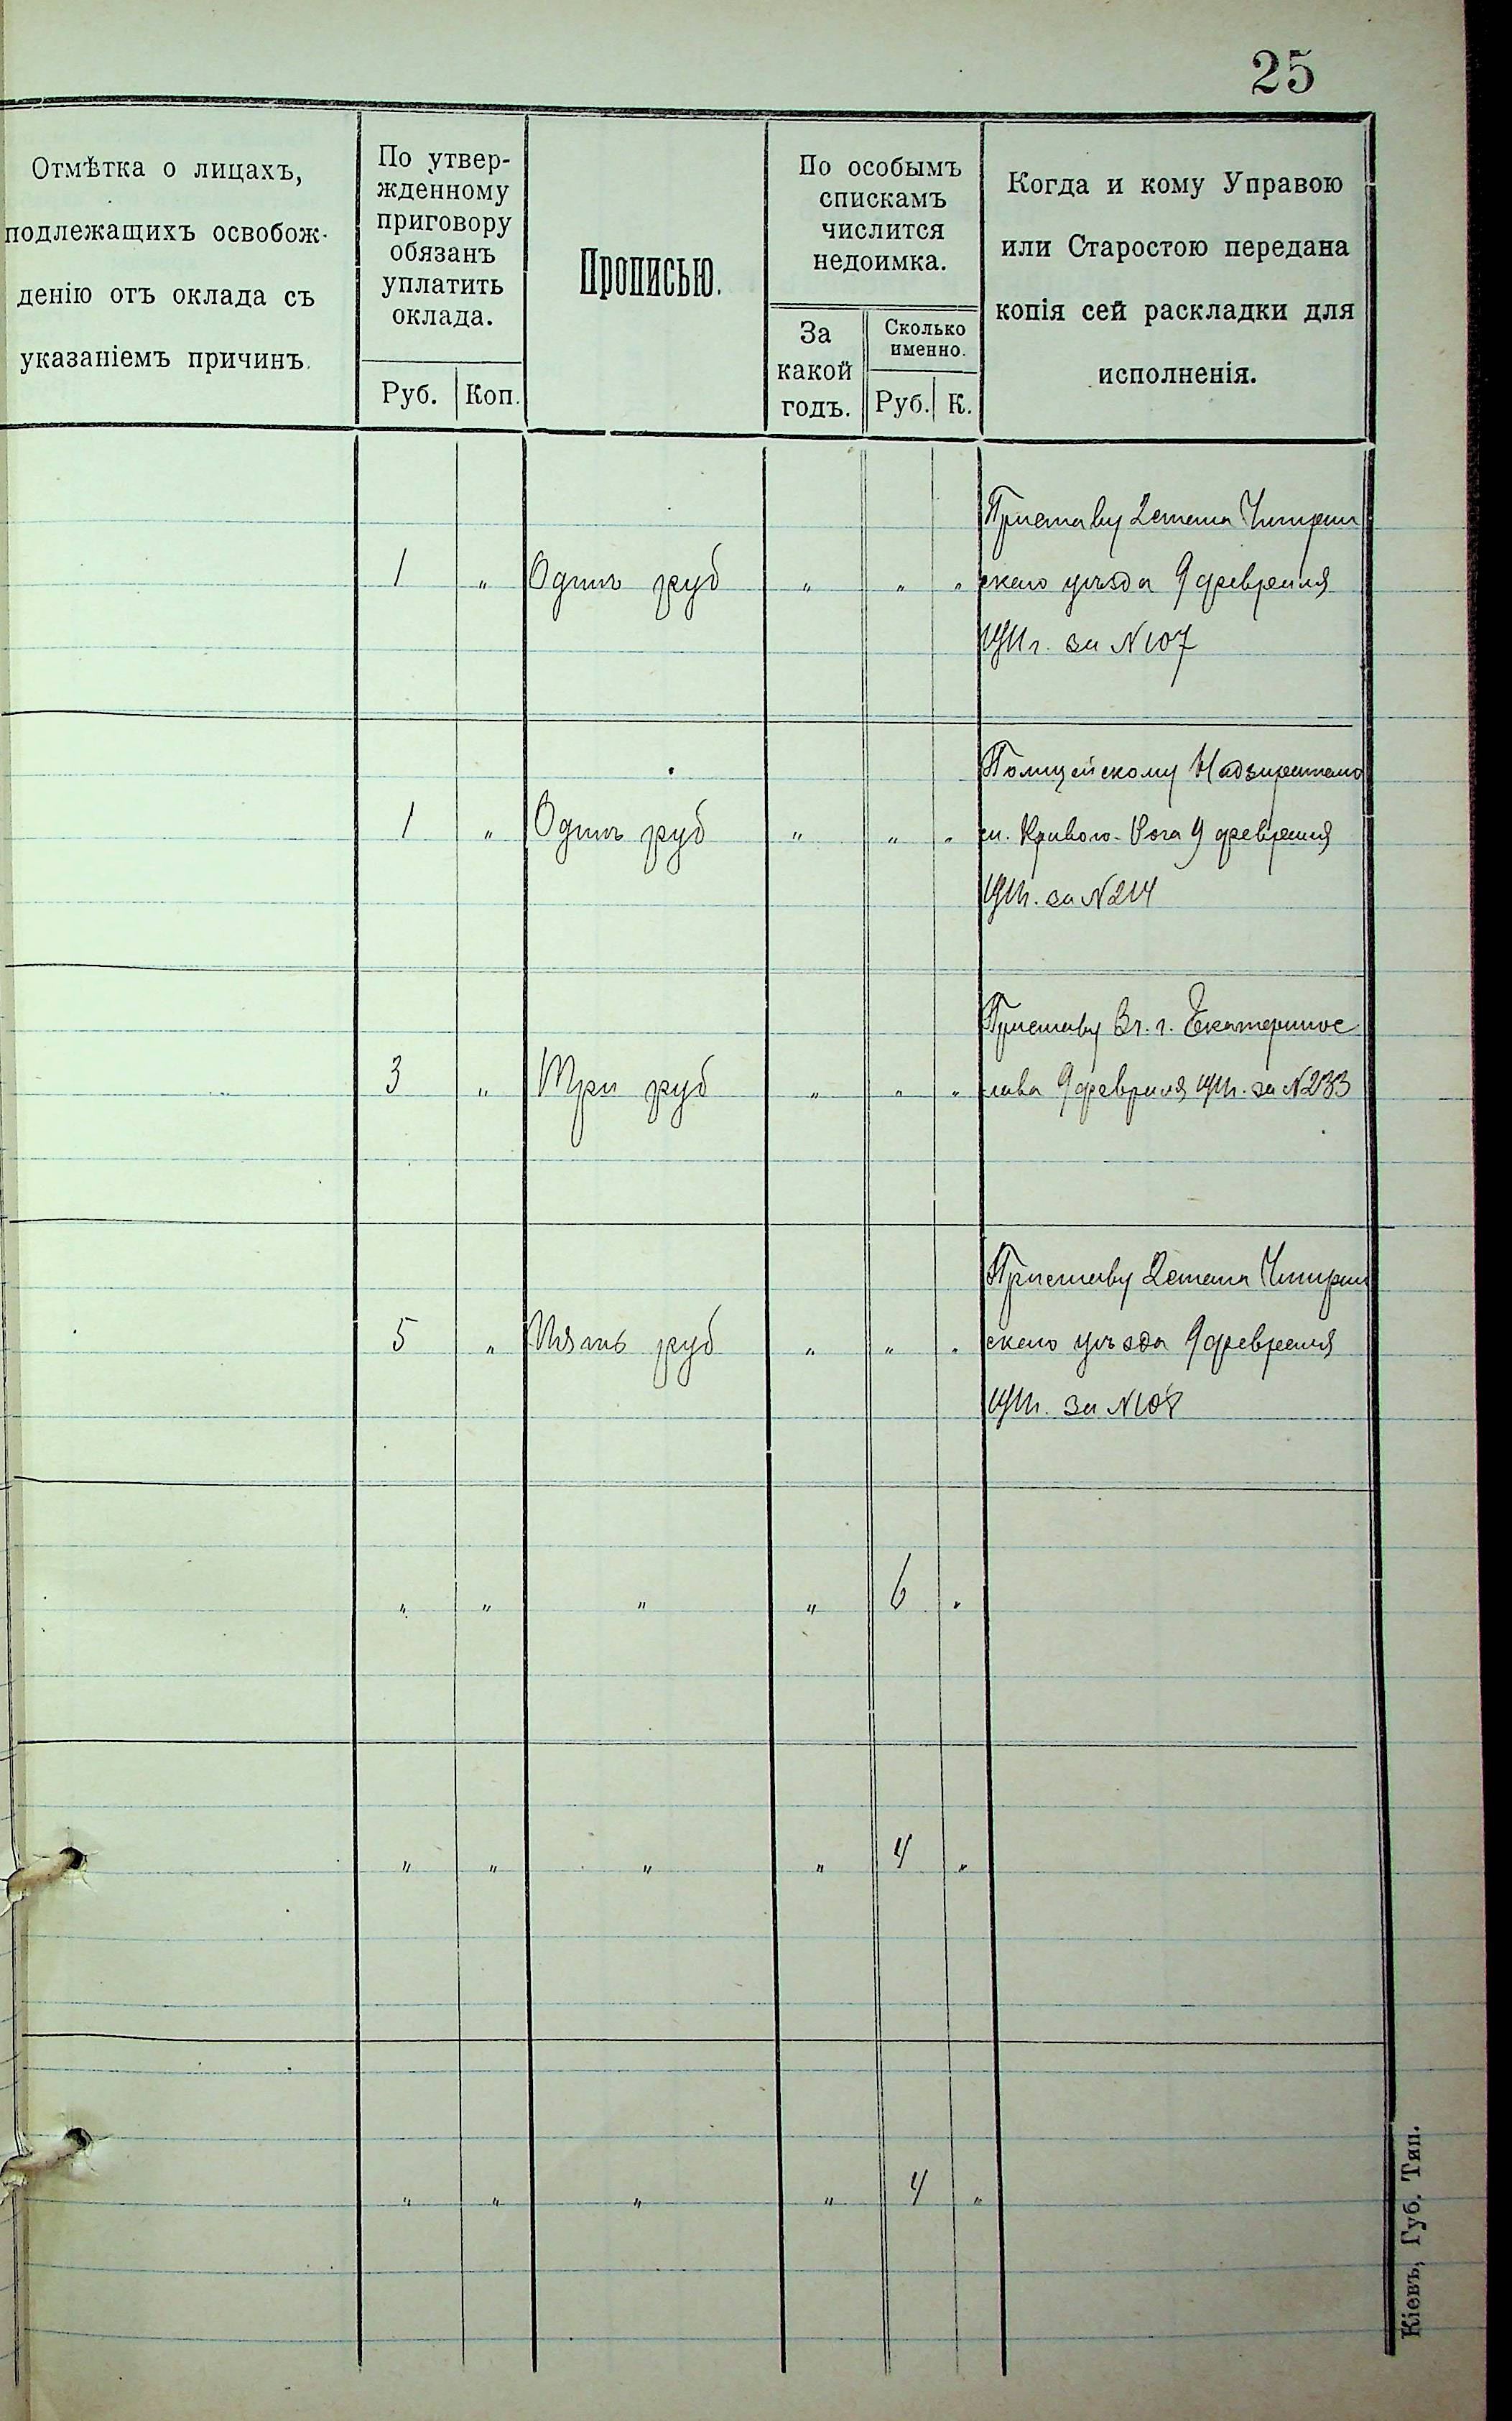 25
Отмѣтка о лицахъ,
подлежащихъ освобож-
денію отъ оклада съ
указаніемъ причинъ.
По утвер-
жденному
приговору
обязанъ
уплатить
оклада.
Руб. Коп.
Прописью.
По особымъ
спискамъ
числится
недоимка.
За
какой
годъ.
Сколько
именно.
Руб. К.
Когда и кому Управою
или Старостою передана
копія сей раскладки для
исполненія.
Приставу 2 стана Чигрин
1 " Одинъ руб " " " скаго уѣзда 9 февраля
1911 г. за N 107
Полицейскому Надзирателю
1 " Одинъ руб " " " м. Кривого-Рога 9 февраля
1911 г. за N 214
Приставу 3 ч. г. Екатеринос
3 " Три руб " " " лава 9 февраля 1911 г. за N 233
Приставу 2 стана Чигрин
5 " Пять руб " " " скаго уѣзда 9 февраля
1911 г. за N 108
" " " " 6 "
" " " " 4 "
" " " " 4 "
Кіевъ, Губ. Тип.